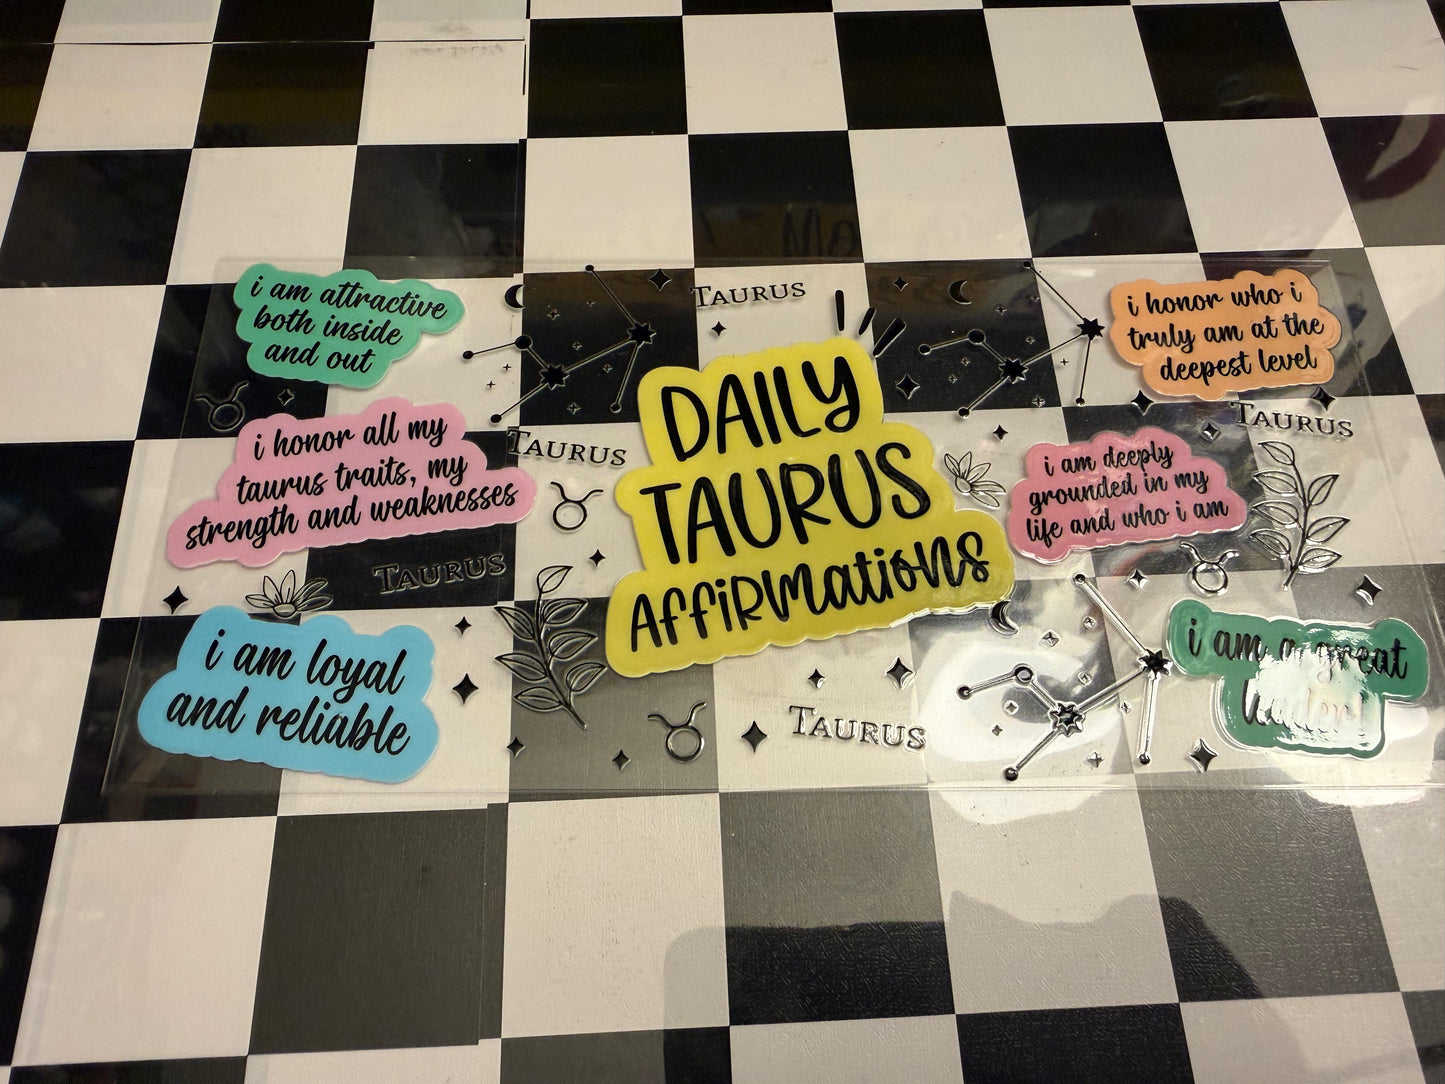 i am attractive
both inside
and out
i honor all my
taurus traits, my
strength and weaknesses
i am loyal
and reliable
TAURUS
TAURUS
TAURUS
DAILY
TAURUS
AFFIRMATIONS
TAURUS
i honor who i
truly am at the
deepest level
TAURUS
i am deeply
grounded in my
life and who i am
i am a great
leader!